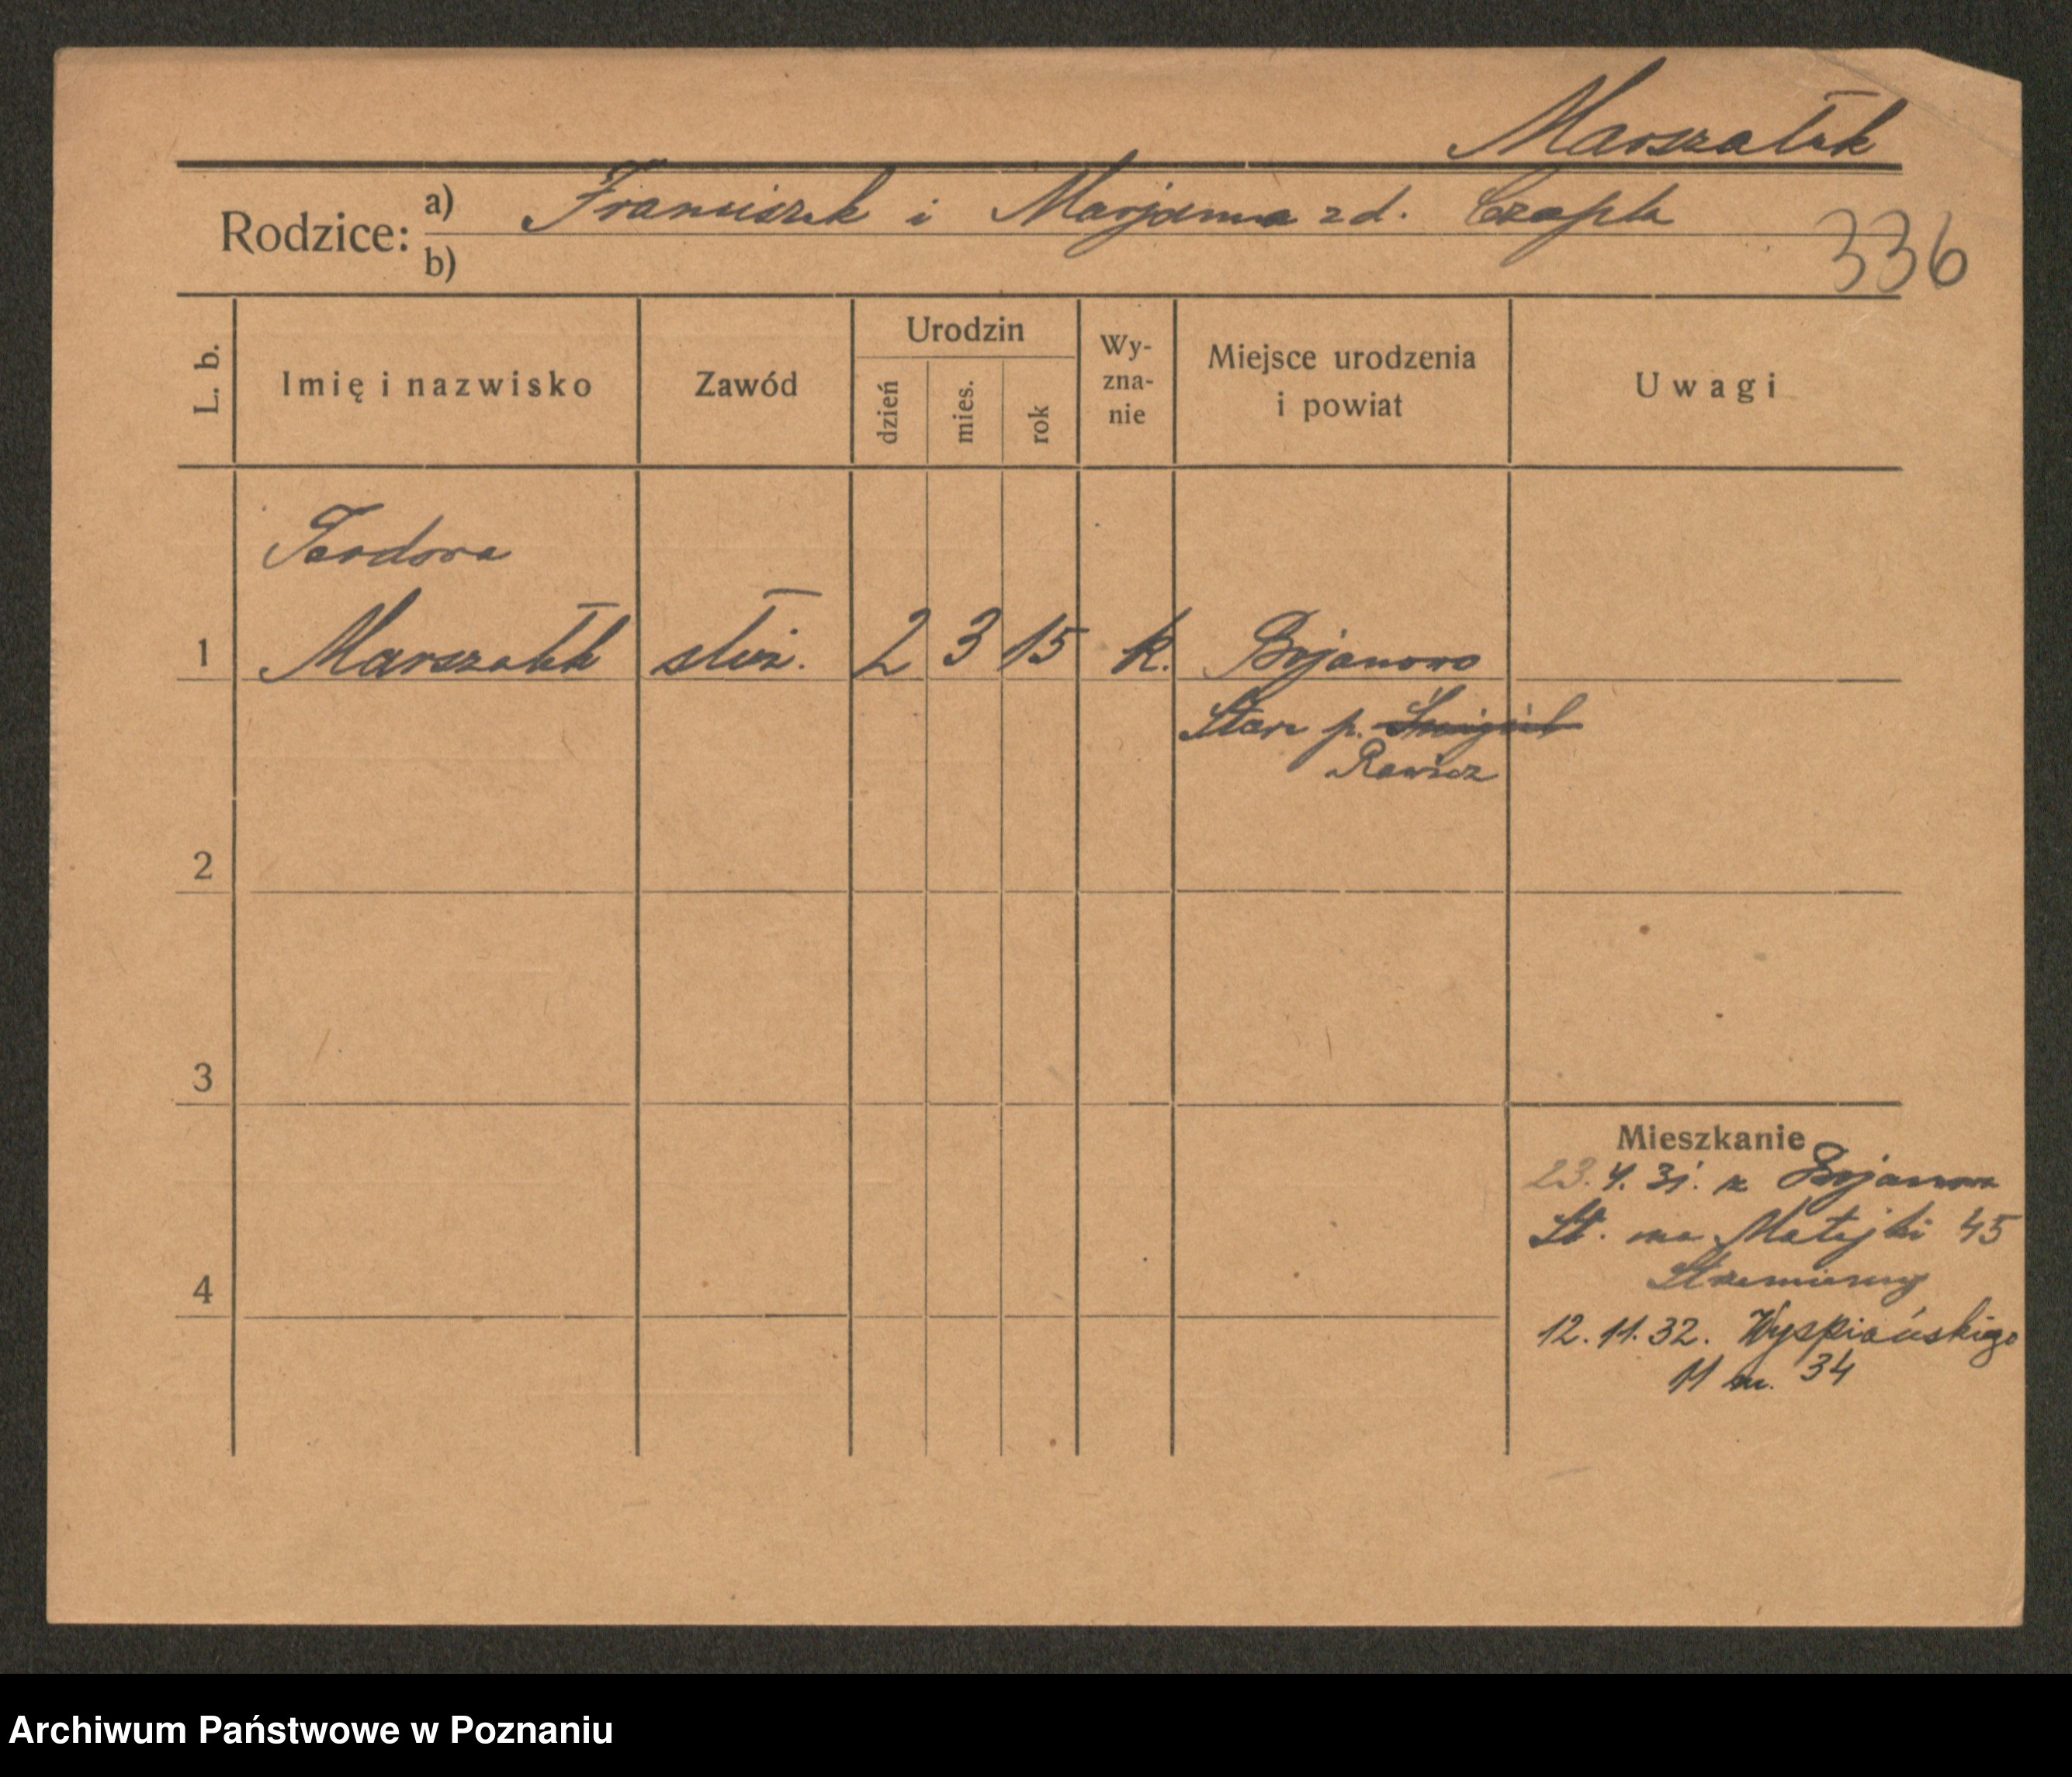 Marszałek
Rodzice: a) Franciszek i Marjanna zd. Czapla
b)
336
L. b. Imię i nazwisko Zawód Urodzin dzień mies. rok Wy-zna-nie Miejsce urodzenia i powiat Uwagi
Teodora
1 Marszałek służ. 2 3 15 k. Bojanowo
Stare p. Śmigiel
Rawicz
2
3
Mieszkanie
23. 4. 31. z Bojanowa
St. na Matejki 45
4
12. 11. 32. Wyspiańskiego
11 m. 34
Archiwum Państwowe w Poznaniu